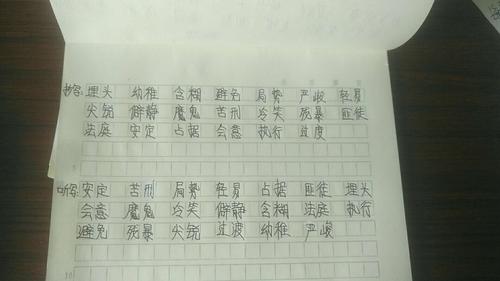 抄写: 埋头 幼稚 含糊 避免 局势 严峻 轻易
尖锐 僻静 魔鬼 苦刑 冷笑 残暴 匪徒
法庭 安定 占据 会意 执行 过度
听写: 安定 苦刑 局势 轻易 占据 匪徒 埋头
会意 魔鬼 冷笑 僻静 含糊 法庭 执行
避免 残暴 尖锐 过渡 幼稚 严峻
10